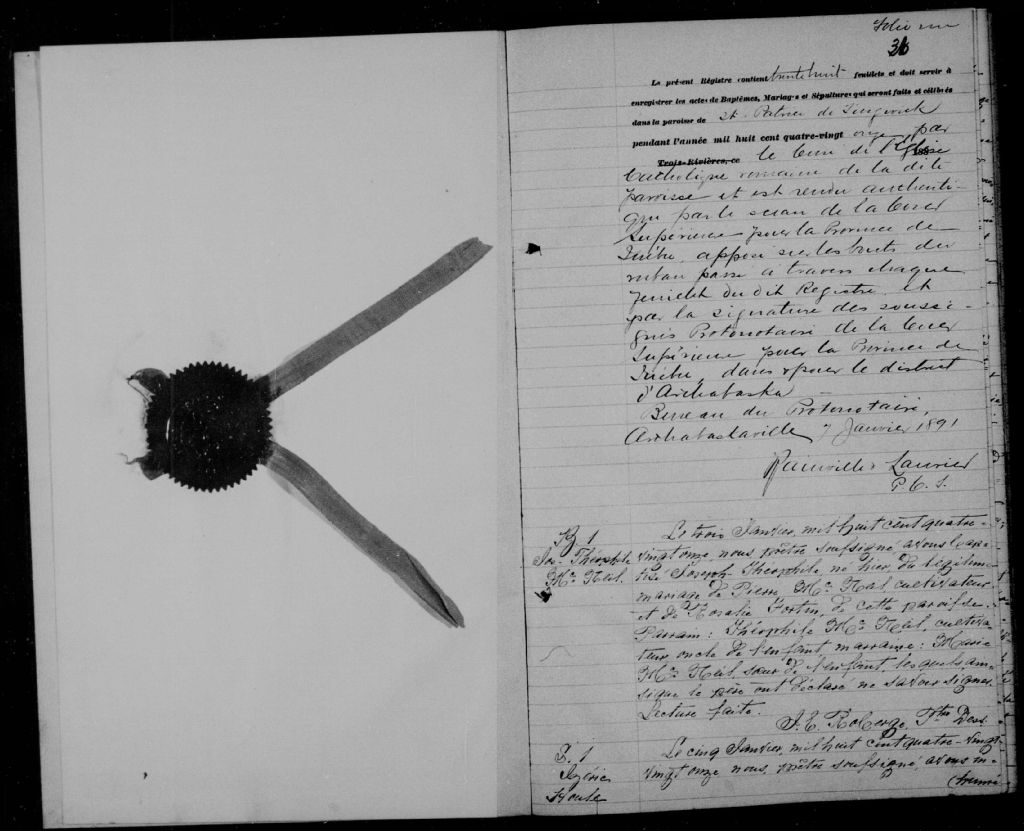 Folio un
36
Le présent Régistre contient trente huit feuillets et doit servir à
enregistrer les actes de Baptêmes, Mariages et Sépultures qui seront faits et célébrés
dans la paroisse de St. Patrice de Tingwick
pendant l'année mil huit cent quatre-vingt onze, par
Trois-Rivières, ce le Curé de l'Eglise
Catholique romaine de la dite
paroisse et est rendu authenti-
que par le sceau de la Cour
Supérieure pour la Province de
Québec apposé sur les bouts du
ruban passé à travers chaque
feuillet du dit Registre et
par la signature des soussi-
gnés Protonotaire de la Cour
Supérieure pour la Province de
Québec, dans & pour le district
d'Arthabaska
Bureau du Protonotaire,
Arthabaskaville 7 Janvier 1891
Rainville & Laurier
P. C. S.
B. 1
Jos. Théophile
Mc Neil.
Le trois Janvier, mil huit cent quatre-
vingt onze, nous prêtre soussigné, avons bap-
tisé Joseph Théophile, né hier, du légitime
mariage de Pierre Mc Neil cultivateur
et de Rosalie Fortin, de cette paroisse.
Parrain: Théophile Mc Neil, cultiva-
teur oncle de l'enfant, marraine: Marie
Mc Neil, sœur de l'enfant, lesquels, ain-
si que le père ont déclaré ne savoir signer.
Lecture faite.
J. E. Roberge Ptre Desst.
S. 1
Houle
Le cinq Janvier, mil huit cent quatre-vingt-
vingt onze nous, prêtre soussigné, avons in-
(humé